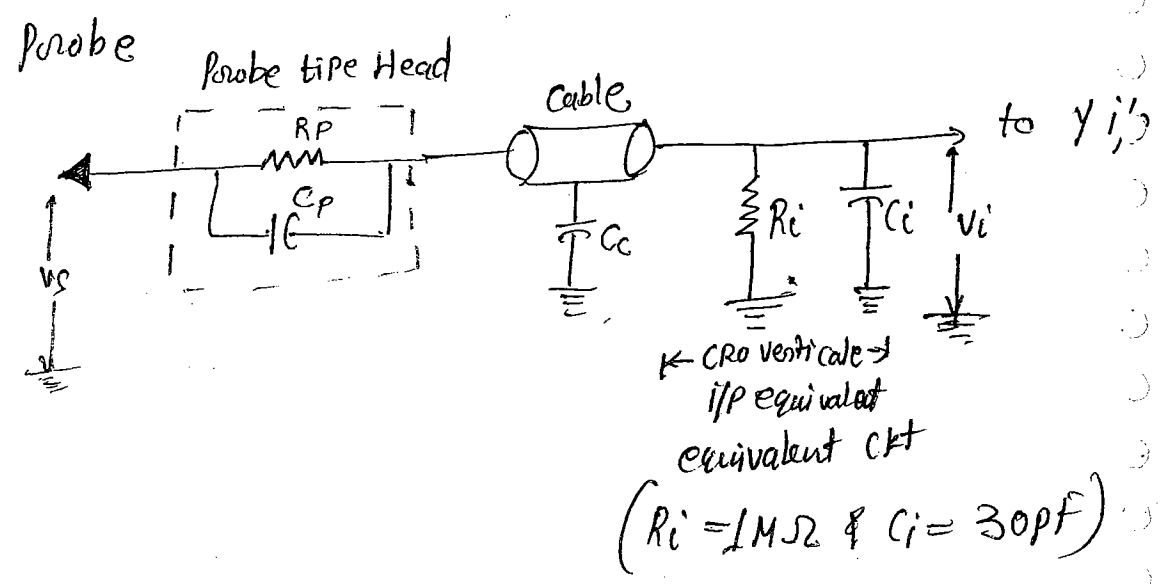 Probe
Probe tipe Head
Cable
to Y i/p
RP
Cp
Cc
Ri
Ci
vi
vs
CRO verticale
i/p equivalent
equivalent ckt
(Ri = 1MΩ & Ci = 30pF)